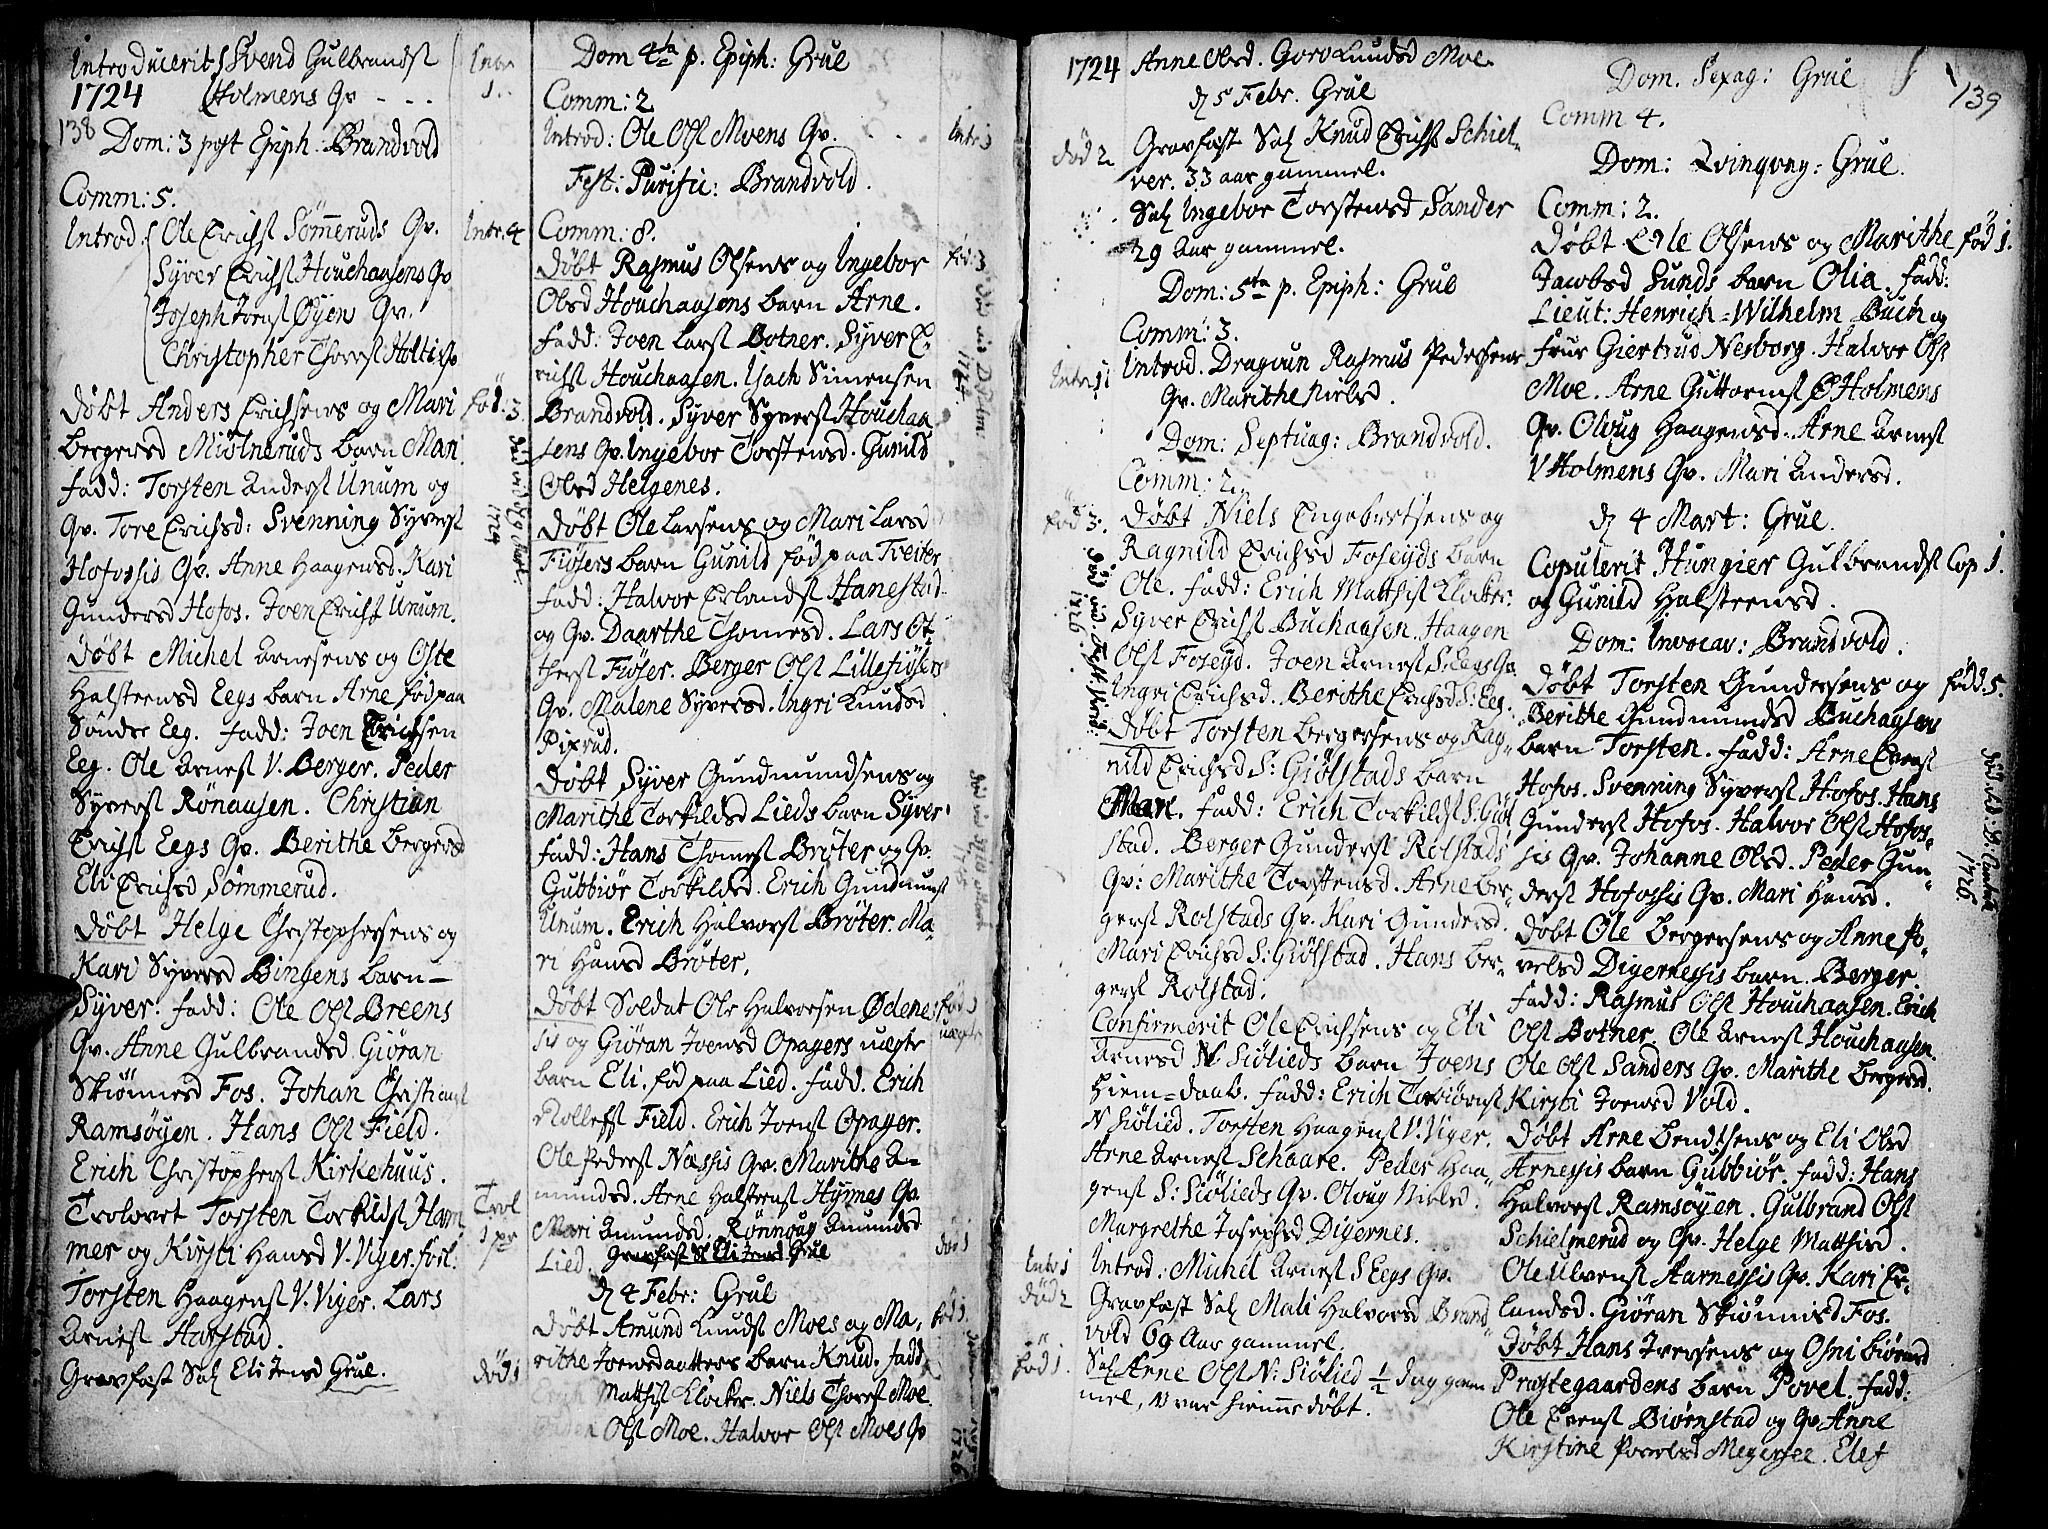 Introducerit Svend Gulbrandsſt
1724 Holmens Qv - - -
Intr 1..
138
Dom: 3 post Epiph: Brandvold
Comm: 5.
Introd. Ole Erichsſt Sømmeruds Qv.
Intr. 4
Syver Erichsſt Houchaasens Qv
Joseph Joensſt Øyens Qv.
Christopher Thoresſt Holtis Qv
Døbt Anders Erichsens og Mari
fød: 3
Bergersd Miølneruds barn Mari.
Fadd: Torsten Andersſt Unum og
Qv. Tore Erichsd: Svenning Syversſt
1724
Hofossis Qv. Anne Haagensd. Kari
Gundersd Hofos. Joen Erichsſt Unum.
Døbt Michel Arnesens og Oste
Halsteensd Eegs barn Arne fød paa
Søndre Eeg. Fadd: Joen Erichsen
Eeg. Ole Arnesſt V. Berger. Peder
Syversſt Rønaasen. Christian
Erichsſt Eegs Qv. Berithe Bergersd
Eli Erichsd Sømmerud.
Døbt Helge Christophersens og
Kari Syversd Bingens barn -
Syver. Fadd: Ole Olsſt Breens
Qv. Anne Gulbrandsd. Giøran
Skiønnesd Fos. Johan Christiansſt
Ramsøyen. Hans Olsſt Field.
Erich Christophersſt Kirkehuus.
Trolovet Torsten Torkildsſt Ham
Trol
mer og Kirsti Hansd V. Viger. forl:
1 pr
Torsten Haagensſt V. Viger. Lars
Arnesſt Harstad.
Gravfæst Sal Eli Jensd Grue.
død 1
Dom 4ta p. Epiph: Grue
Comm: 2
Introd: Ole Olsſt Moens Qv.
Intr: 1
Fest: Purific: Brandvold.
Comm: 8.
Døbt Rasmus Olsens og Ingebor
fød: 3
Olsd Houchaasens barn Arne.
Fadd: Joen Larsſt Botner. Syver E-
richsſt Houchaasen. Isach Simensen
Brandvold. Syver Syversſt Houchaa
sens Qv. Ingebor Torstensd. Gunild
Olsd Helgenes.
1724
Døbt Ole Larsens og Mari Larsd
Fiøsers barn Gunild fød paa Treiter
Fadd: Halvor Erlandsſt Hanestad
og Qv. Daarthe Thomesd. Lars Ot-
thersſt Fiøser. Berger Olsſt Lillefiøsers
Qv. Malene Syversd. Ingri Knudsd
Pixrud.
Døbt Syver Gundmundsens og
Marithe Torkildsd Lieds barn Syver.
Fadd: Hans Thomesſt Brøter og Qv.
Gubbiør Torkildsd. Erich Gundmunsſt
Unum. Erich Halvorsſt Brøter. Ma-
ri Hansd Brøter.
Døbt Soldat Ole Halvorsen Ødene
fød 1
sis og Giøran Joensd Opagers uægte
uægte
barn Eli, fød paa Lied. Fadd. Erich
Rolfsſt Field. Erich Joensſt Opager.
Ole Pedersſt Næssis Qv. Marithe A-
mundsd. Arne Halsteensſt Hymes Qv.
Mari Amundsd. Rønnoug Amundsd
Lied. Gravfæst S. Eli Jensd Grue
død 1
d 4 Febr: Grue
Døbt Amund Knudsſt Moes og Ma-
fød 1.
rithe Joensdaatters barn Knud. Fadd
Matthisſt Klocker. Niels Thoresſt Moe.
Olsſt Moe. Halvor Olsſt Moes Qv
1726
1724 Anne Olsd. Goro Knudsd Moe.
d 5 Febr. Grue
død 2
Gravfæst Sal Knud Erichsſt Schiel-
ver. 33 aar gammel.
Sal Ingebor Torstensd Sander
29 Aar gammel.
Dom: 5ta p. Epiph: Grue
Comm: 3.
Intr: 1
Introd. Dragoun Rasmus Pedersens
Qv. Marithe Nielsd.
Dom: Septuag: Brandvold.
Comm: 2.
fød 3:
Døbt Niels Engebretsens og
Ragnild Erichsd Foseyds barn
Ole. Fadd: Erich Matthisſt Klocker.
1726
Syver Erichsſt Buchaasen. Haagen
Olsſt Foseyd. Joen Arnesſt S. Eegs Qv.
Ingri Erichsd. Berithe Erichsd S: Eeg.
Døbt Torsten Bergersens og Rag-
nild Erichsd S: Giølstads barn
Mari. Fadd: Erich Torkildsſt S. Giøl
stad. Berger Gundersſt Rolstads
Qv: Marithe Torstensd. Arne Ber-
gersſt Rolstads Qv. Kari Gundersd.
Mari Erichsd S: Giølstad. Hans Ber-
gersſt Rolstad.
Confirmerit Ole Erichsens og Eli
Arnesd N Siølieds barn Joens
hiem-daab. Fadd: Erich Torbiørnsſt
N Siølied. Torsten Haagensſt V. Viger.
Arne Arnesſt Schaare. Peder Haa-
gensſt S: Siølieds Qv. Oloug Nielsd.
Margrethe Josephsd Digernes.
Intr 1
Introd: Michel Arnesſt S Eegs Qv.
død 2
Gravfæst Sal Mali Halvorsd Brand-
vold 69 Aar gammel.
fød 1.
Sal Arne Olsſt N: Siølied ½ Dag gam
mel, v var hiemme døbt.
Dom. Sexag: Grue
139
Comm 4.
Dom: Qvinqvag: Grue.
Comm: 2.
Døbt Erle Olsens og Marithe
fød 1.
Jacobsd Sunds barn Olia. Fadd:
Lieut: Henrich-Wilhelm Buch og
Frue Giertrud Nesborg. Halvor Olsſt
Moe. Arne Guttormsſt Ø Holmens
Qv. Oloug Haagensd. Arne Arnesſt
V Holmens Qv. Mari Andersd.
d 4 Mart: Grue.
Copulerit Hungier Gulbrandsſt
Cop 1.
og Gunild Halsteensd.
Dom: Invocav: Brandvold.
Døbt Torsten Gundersens og
fødd. 5.
Berithe Gundmundsd Buchaasens
barn Torsten. Fadd: Arne Evensſt
Hofos. Svenning Syversſt Hofos. Hans
Gundersſt Hofos. Halvor Olsſt Hofos-
sis Qv. Johanne Olsd. Peder Gun-
1726.
dersſt Hofossis Qv. Mari Hansd.
Døbt Ole Bergersens og Anne Po-
velsd Digernessis barn. Berger.
Fadd: Rasmus Olsſt Houchaasen. Erich
Olsſt Botner. Ole Arnesſt Houchaasen.
Ole Olsſt Sanders Qv. Marithe Bergersd.
Kirsti Joensd Vold.
Døbt Arne Bendtsens og Eli Olsd
Arnessis barn Gubbiør. Fadd: Hans
Halvorsſt Ramsøyen. Gulbrand Olsſt
Schielmerud og Qv. Helge Matthisd.
Ole Ulvensſt Aarnessis Qv. Kari Er-
landsd. Giøran Skiønnisd Fos.
Døbt Hans Iversens og Osni Biørnsd
Præstegaardens barn Povel. Fadd:
Ole Evensſt Biørnstad og Qv Anne
Kirstine Povelsd Megersee. Elef